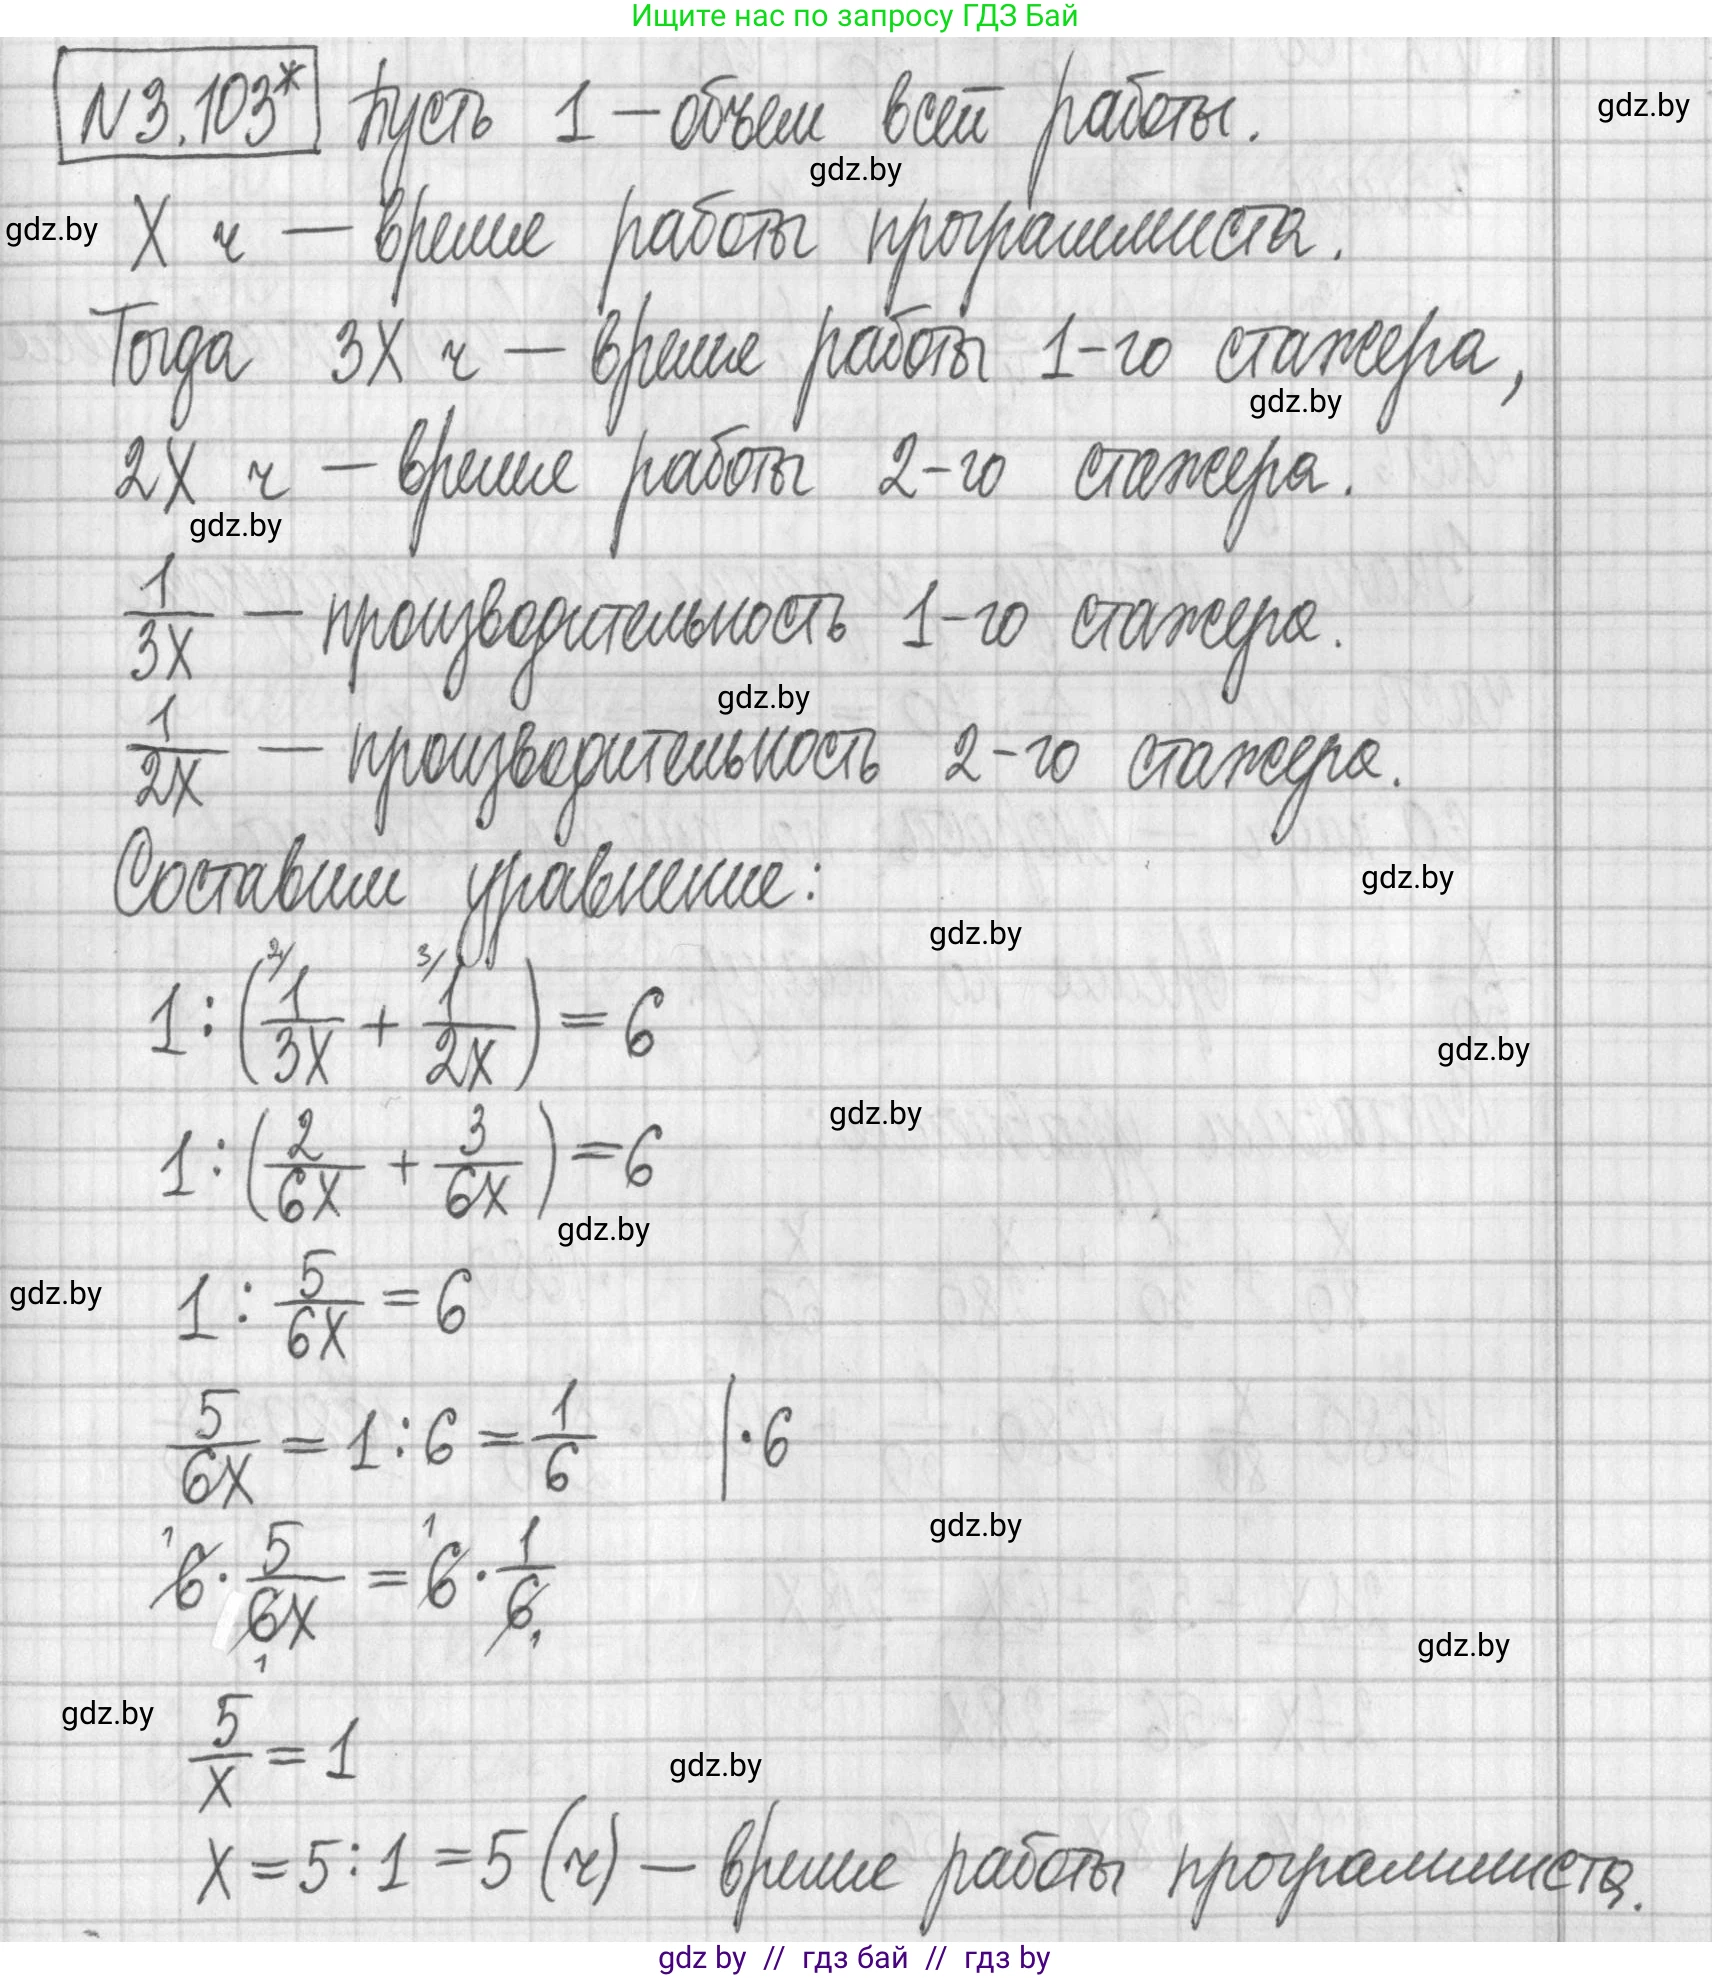 Ищите нас по запросу ГДЗ Бай
N3.103* Пусть 1 – объем всей работы.
gdz.by
gdz.by
gdz.by
X ч – время работы программиста.
Тогда 3X ч – время работы 1-го стажера,
gdz.by
2X ч – время работы 2-го стажера.
gdz.by
1/3X – производительность 1-го стажера.
gdz.by
1/2X – производительность 2-го стажера.
Составим уравнение:
gdz.by
gdz.by
1 : (2/ 1/3X + 3/ 1/2X) = 6
gdz.by
gdz.by
1 : (2/6X + 3/6X) = 6
gdz.by
gdz.by
1 : 5/6X = 6
5/6X = 1 : 6 = 1/6 | · 6
gdz.by
6 · 5/6X = 6 · 1/6
gdz.by
gdz.by
5/X = 1
gdz.by
X = 5 : 1 = 5 (ч) – время работы программиста.
gdz by // гдз бай // гдз by